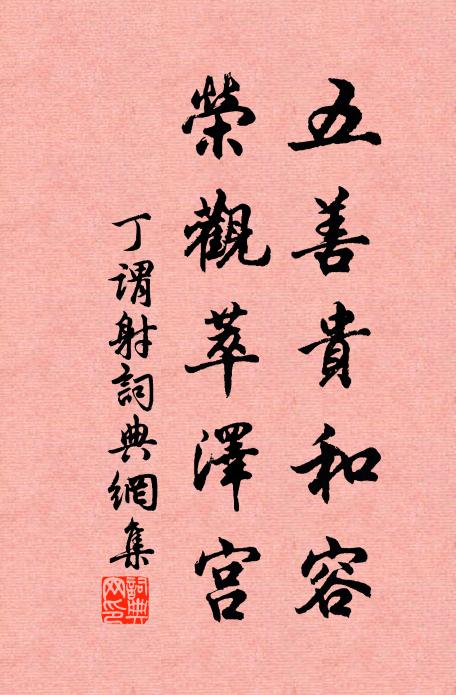 五善貴和容
榮觀萃澤宮
丁謂射詞典網集
詞典網印